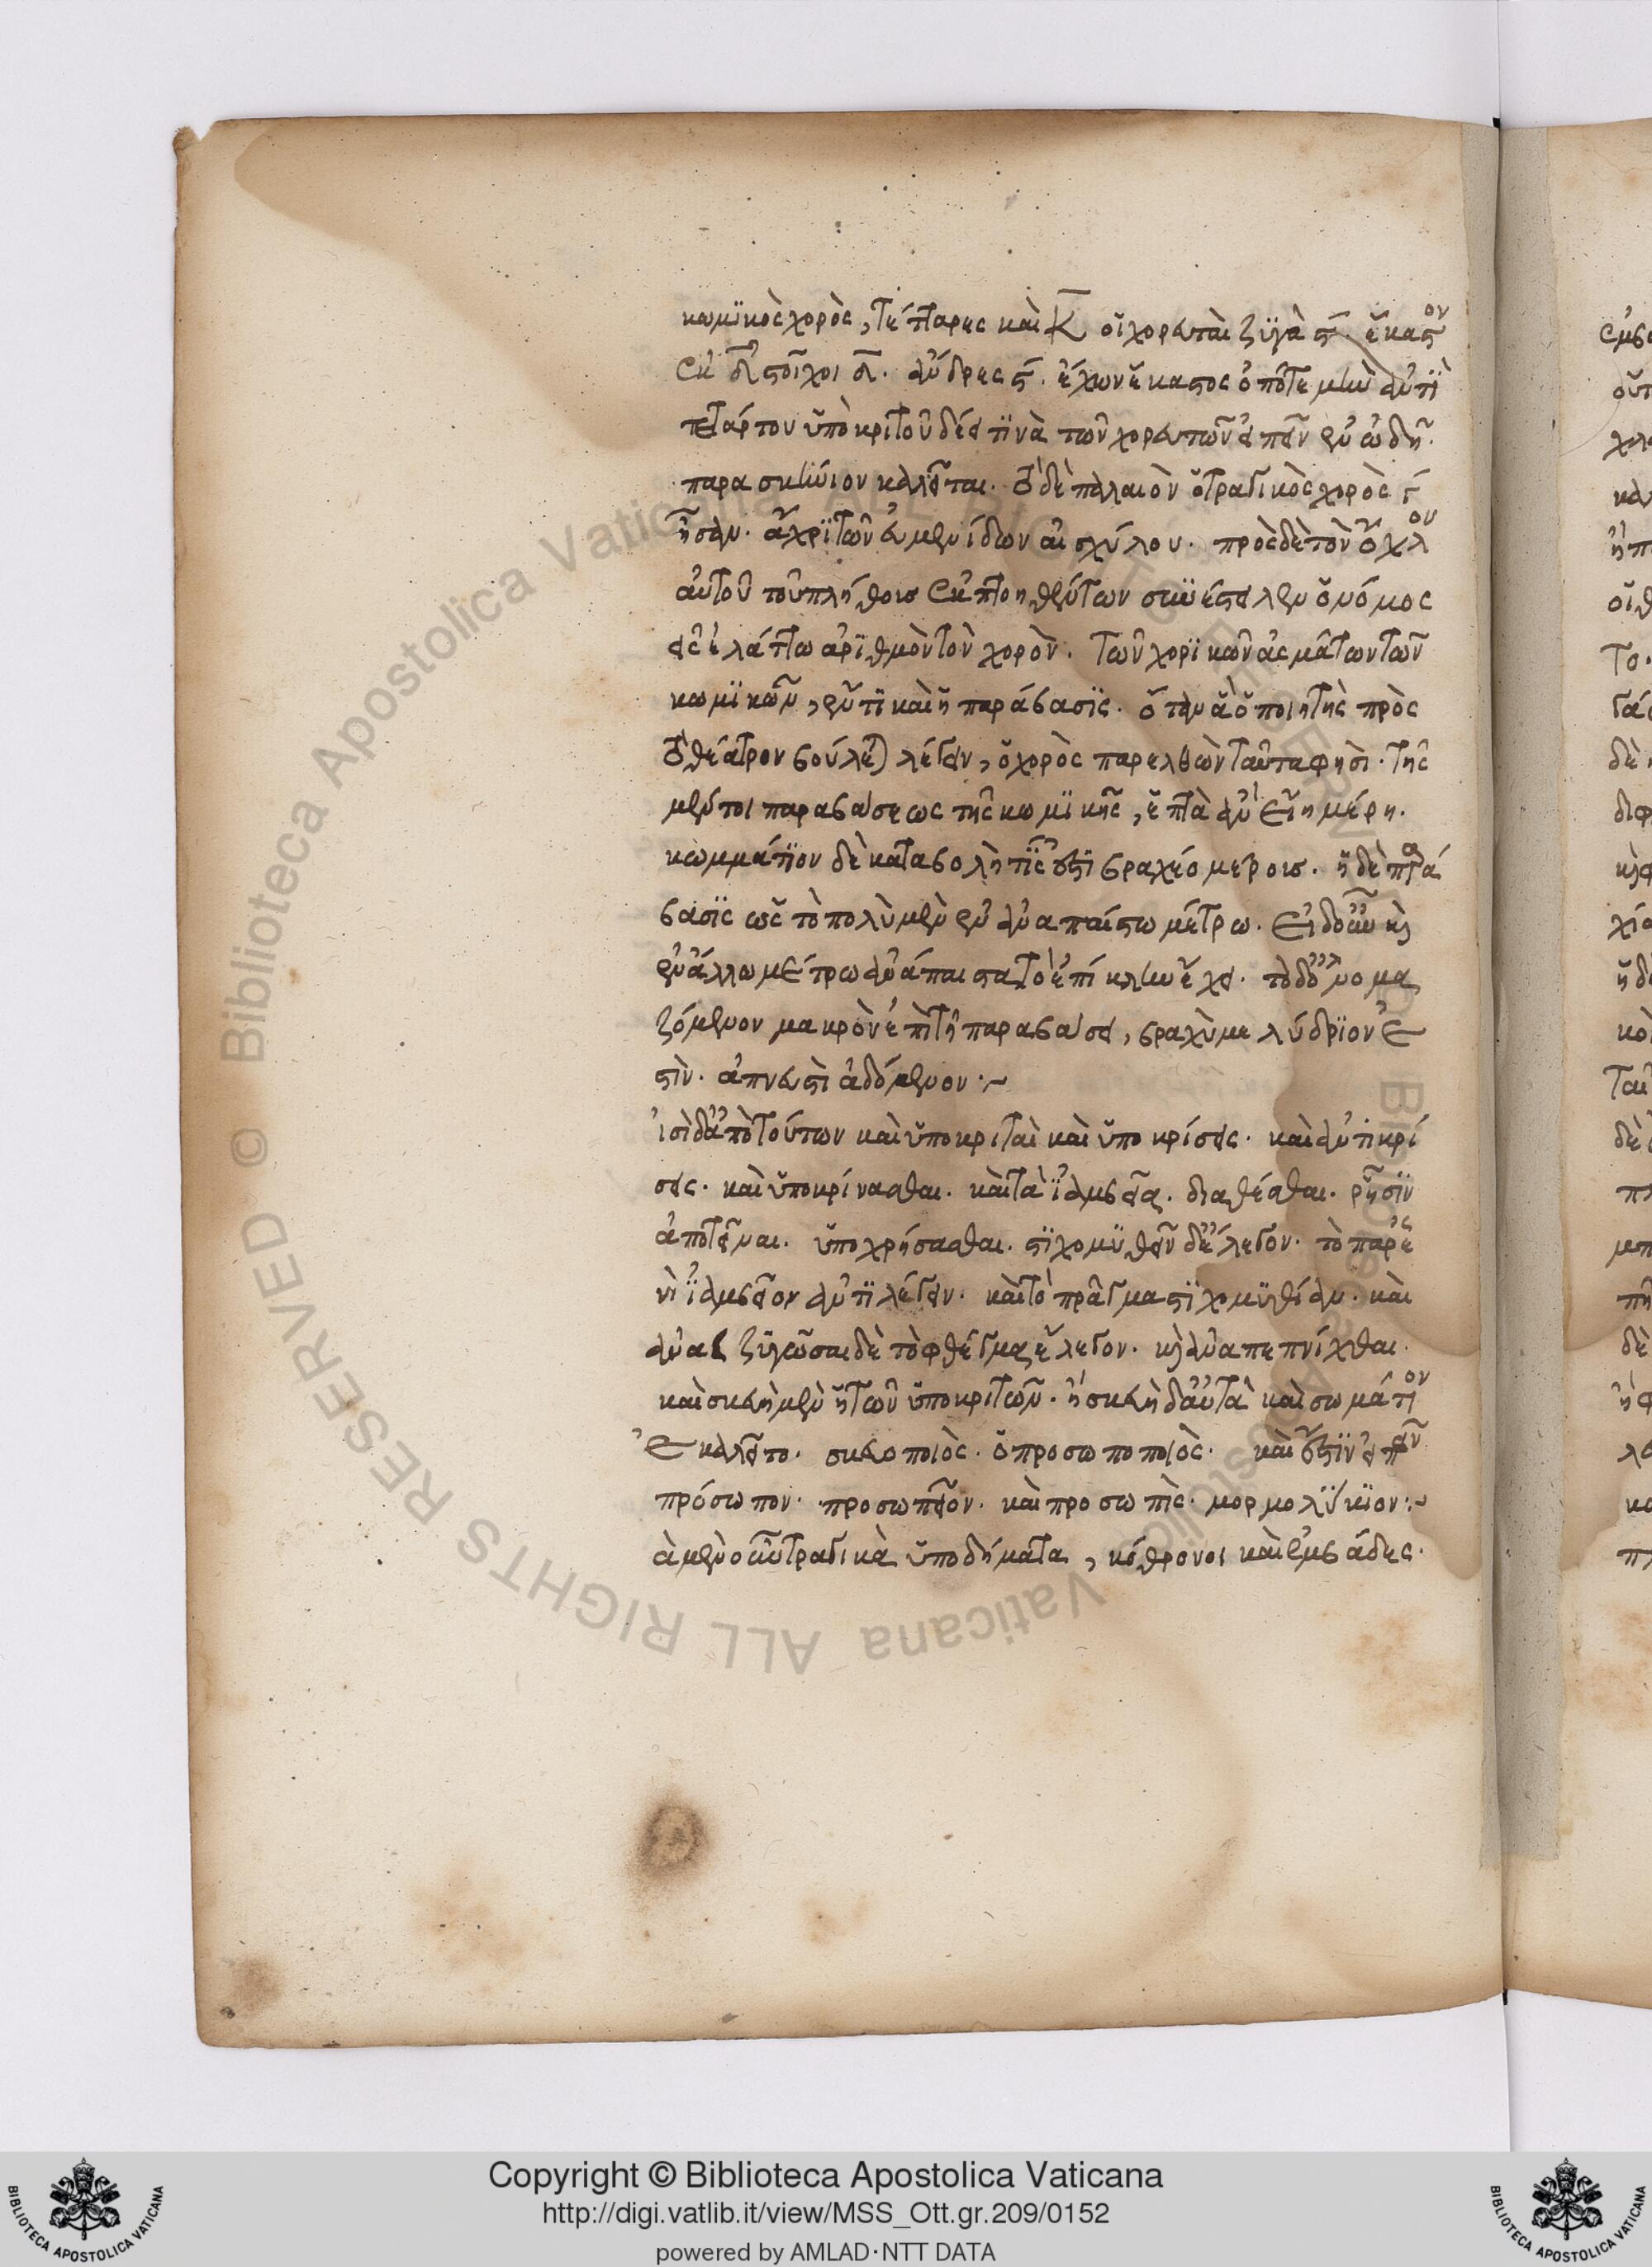 κωμϊκὸς χορὸς, τέτταρες καὶ κ̅ οἱ χορευταὶ ζυγὰ ς̅. ἕκαστον
ἐκ δ̅ στοῖχοι δ̅. ἄνδρες ς̅. ἔχων ἕκαστος ὁπότε μὴν ἀντὶ
τετάρτου ὑποκριτοῦ δέει τινὰ τῶν χορευτῶν εἰπεῖν ἐν ὠδῇ.
παρασκήνιον καλεῖται. τὸ δὲ παλαιὸν ὁ τραγικὸς χορὸς
ἦσαν. ἄχρι τῶν εὐμενίδων αἰσχύλου. πρὸς δὲ τὸν ὄχλον
αὐτοῦ τοῦ πλήθους ἐκπτοηθέντων συνέστειλεν ὁ νόμος
εἰς ἐλάττω ἀριθμὸν τὸν χορόν. τῶν χορικῶν ἀσμάτων τῶν
κωμικῶν, ἕν τι καὶ ἡ παράβασις. ὅταν ἃ ὁ ποιητὴς πρὸς
τὸ θέατρον βούλεται λέγειν, ὁ χορὸς παρελθὼν ταῦτα φησὶ. τῆς
μέντοι παραβάσεως τῆς κωμικῆς, ἑπτὰ ἂν εἴη μέρη.
κομμάτιον δὲ καταβολὴ τίς ἐστι βραχέο μέροις. ἡ δὲ παρά
βασις ὡς τὸ πολὺ μὲν ἐν ἀναπαίστω μέτρω. εἰ δ' οὖν καὶ
ἐν ἄλλω μέτρω ἀνάπαιστα τὸ ἐπίκλην ἔχει. τὸ δ' ὀνομα
ζόμενον μακρὸν ἐπὶ τῇ παραβάσει, βραχὺ μελύδριον ἐ
στὶν. ἀπνευστὶ ἀδόμενον·~
ἰσὶ δ' ἀπὸ τούτων καὶ ὑποκριταὶ καὶ ὑποκρίσεις. καὶ ἀντικρί
σεις. καὶ ὑποκρίνασθαι. καὶ τὰ ἰαμβεῖα. διαθέσθαι. ῥῆσιν
ἀποτεῖναι. ὑποχρήσασθαι. στιχομυθεῖν δ' ἔλεγον. τὸ παρ' ἓ
νὶ ἰαμβεῖον ἀντιλέγειν. καὶ τὸ πρᾶγμα στιχομυθίαν. καὶ
ἀναζυγῶσαι δὲ τὸ φθέγμα ἔλεγον. καὶ ἀναπεπνίχθαι.
καὶ σκευὴ μὲν ἡ τῶν ὑποκριτῶν. ἡ σκευὴ δ' αὐτὰ καὶ σωμάτιον
ἐκαλεῖτο. σκευοποιὸς. ὁ προσωποποιὸς. καὶ ἔστιν εἰπεῖν
πρόσωπον. προσωπεῖον. καὶ προσωπὶς. μορμολύκιον·~
ἃ μὲν οὖν τραγικὰ ὑποδήματα, κόθρονοι καὶ ἐμβάδες.
Copyright © Biblioteca Apostolica Vaticana
http://digi.vatlib.it/view/MSS_Ott.gr.209/0152
powered by AMLAD·NTT DATA